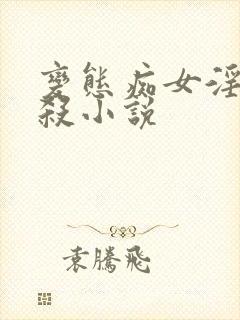 變態痴女淫
殺小說
袁騰飛